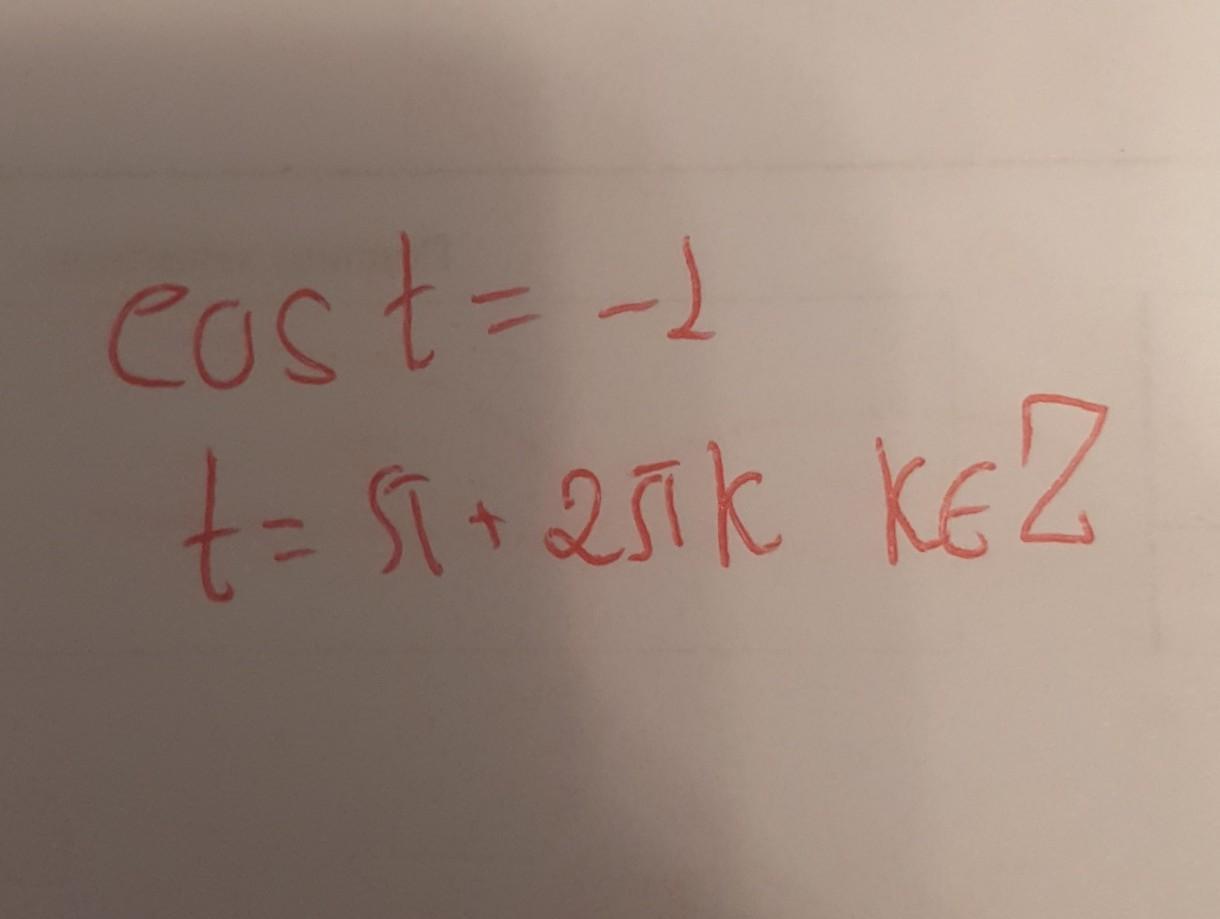 cos t = -1
t = π + 2πk k∈Z